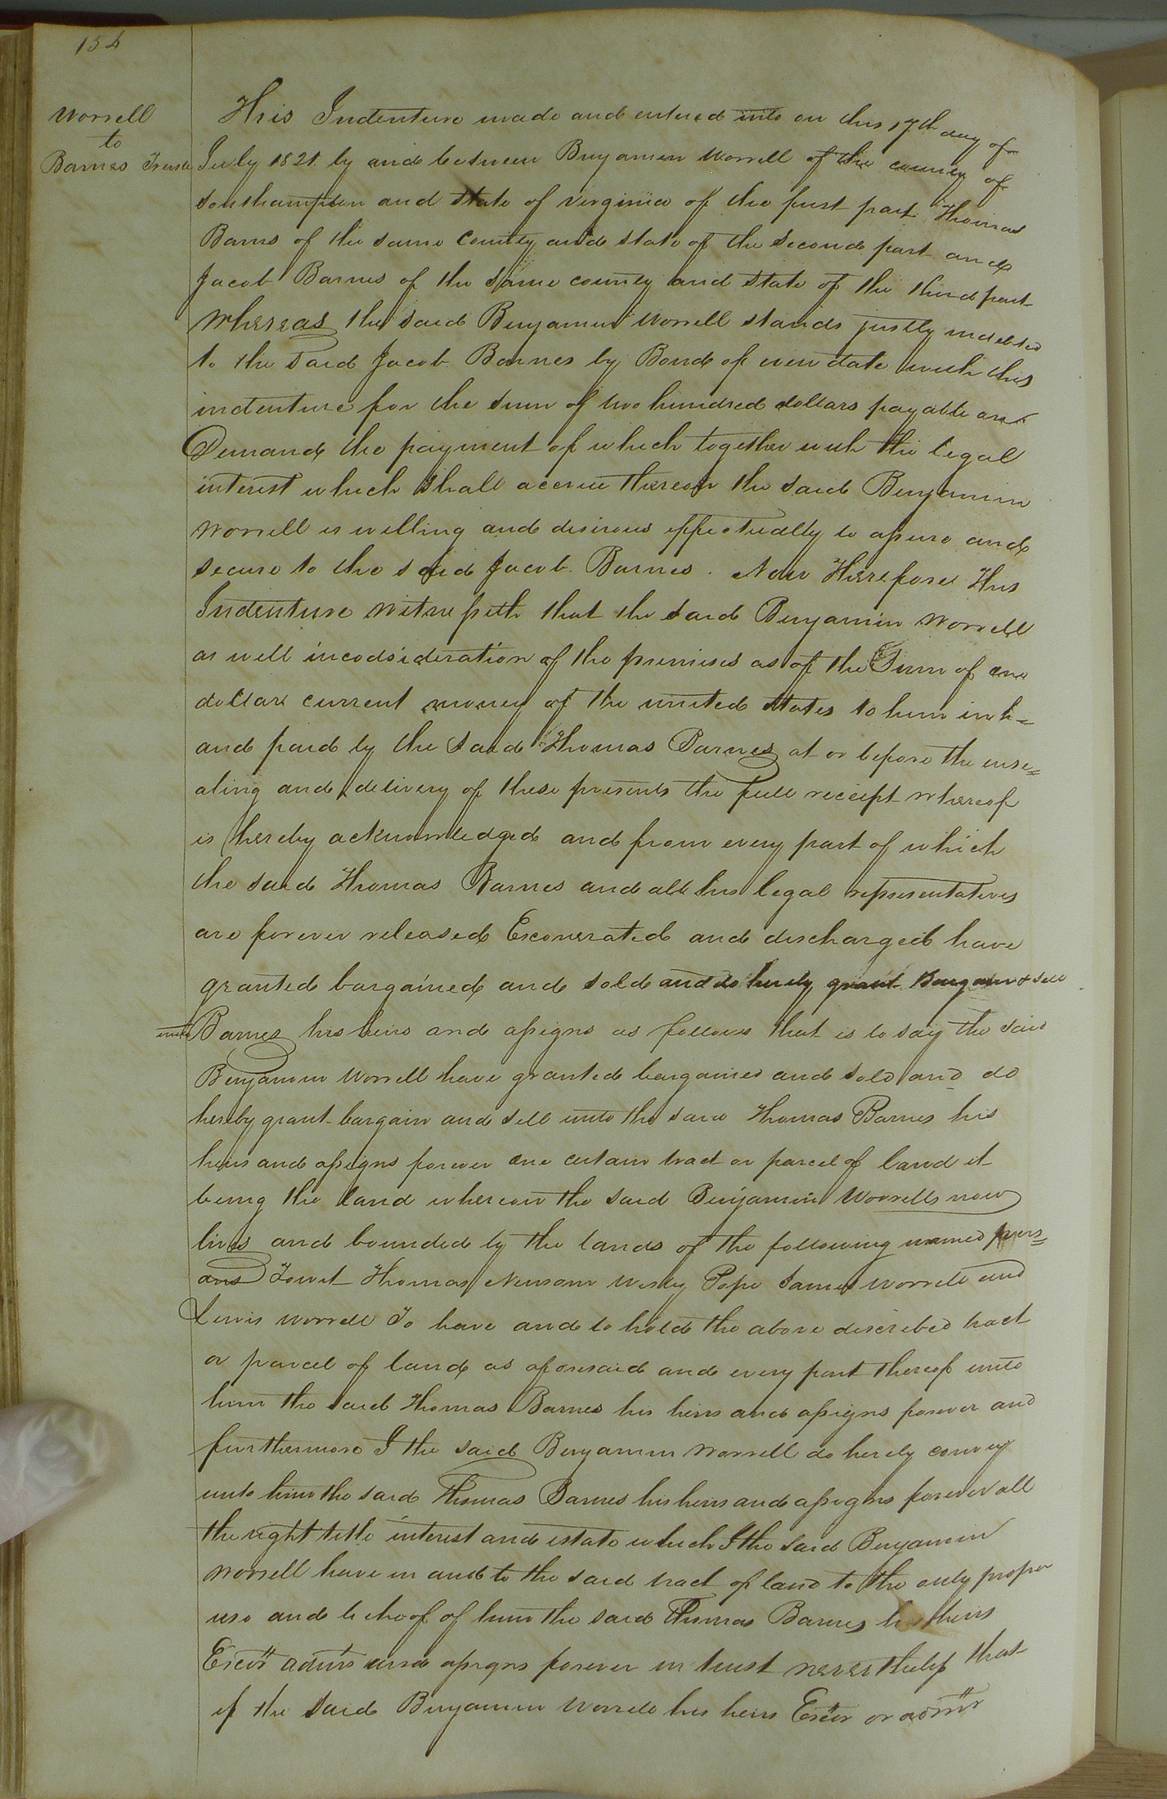 154
Worrell
to
Barnes Trustee
This Indenture made and entered into on this 17th day of
July 1821 by and between Benjamin Worrell of the county of
Southampton and State of Virginia of the first part Thomas
Barns of the same County and state of the second part and
Jacob Barnes of the same county and state of the third part
Whereas the said Benjamin Worrell stands justly indebted
to the said Jacob Barnes by Bond of even date with this
indenture for the sum of two hundred dollars payable on
Demand the payment of which together with the legal
interest which shall accrue thereon the said Benjamin
Worrell is willing and desirous effectually to assure and
secure to the said Jacob Barnes. Now Therefore This
Indenture Witnesseth that the said Benjamin Worrell
as well in cosideration of the premises as of the Sum of one
dollar current money of the united States to him in h=
and paid by the said Thomas Barnes at or before the ense=
aling and delivery of these presents the full receipt whereof
is hereby acknowledged and from every part of which
the said Thomas Barnes and all his legal representatives
are forever released Exonerated and discharged have
granted bargained and sold and do hereby grant Bargain & sell
unto Barnes his heirs and assigns as follows that is to say the said
Benjamin Worrell have granted bargained and sold and do
hereby grant bargain and sell unto the said Thomas Barnes his
heirs and assigns forever one certain tract or parcel of land it
being the land whereon the said Benjamin Worrells now
lives and bounded by the lands of the following named pers=
ons Towit Thomas Newsom Wesley Pope James Worrell and
Lewis Worrell To have and to hold the above described tract
or parcel of land as aforesaid and every part thereof unto
him the said Thomas Barnes his heirs and assigns forever and
furthermore I the said Benjamin Worrell do hereby convey
unto him the said Thomas Barnes his heirs and assigns forever all
the right title interest and estate which I the said Benjamin
Worrell have in and to the said tract of land to the only proper
use and behoof of him the said Thomas Barnes his heirs
Exors admrs and assigns forever in trust nevertheless that
if the said Benjamin Worrell his heirs Exors or admrs